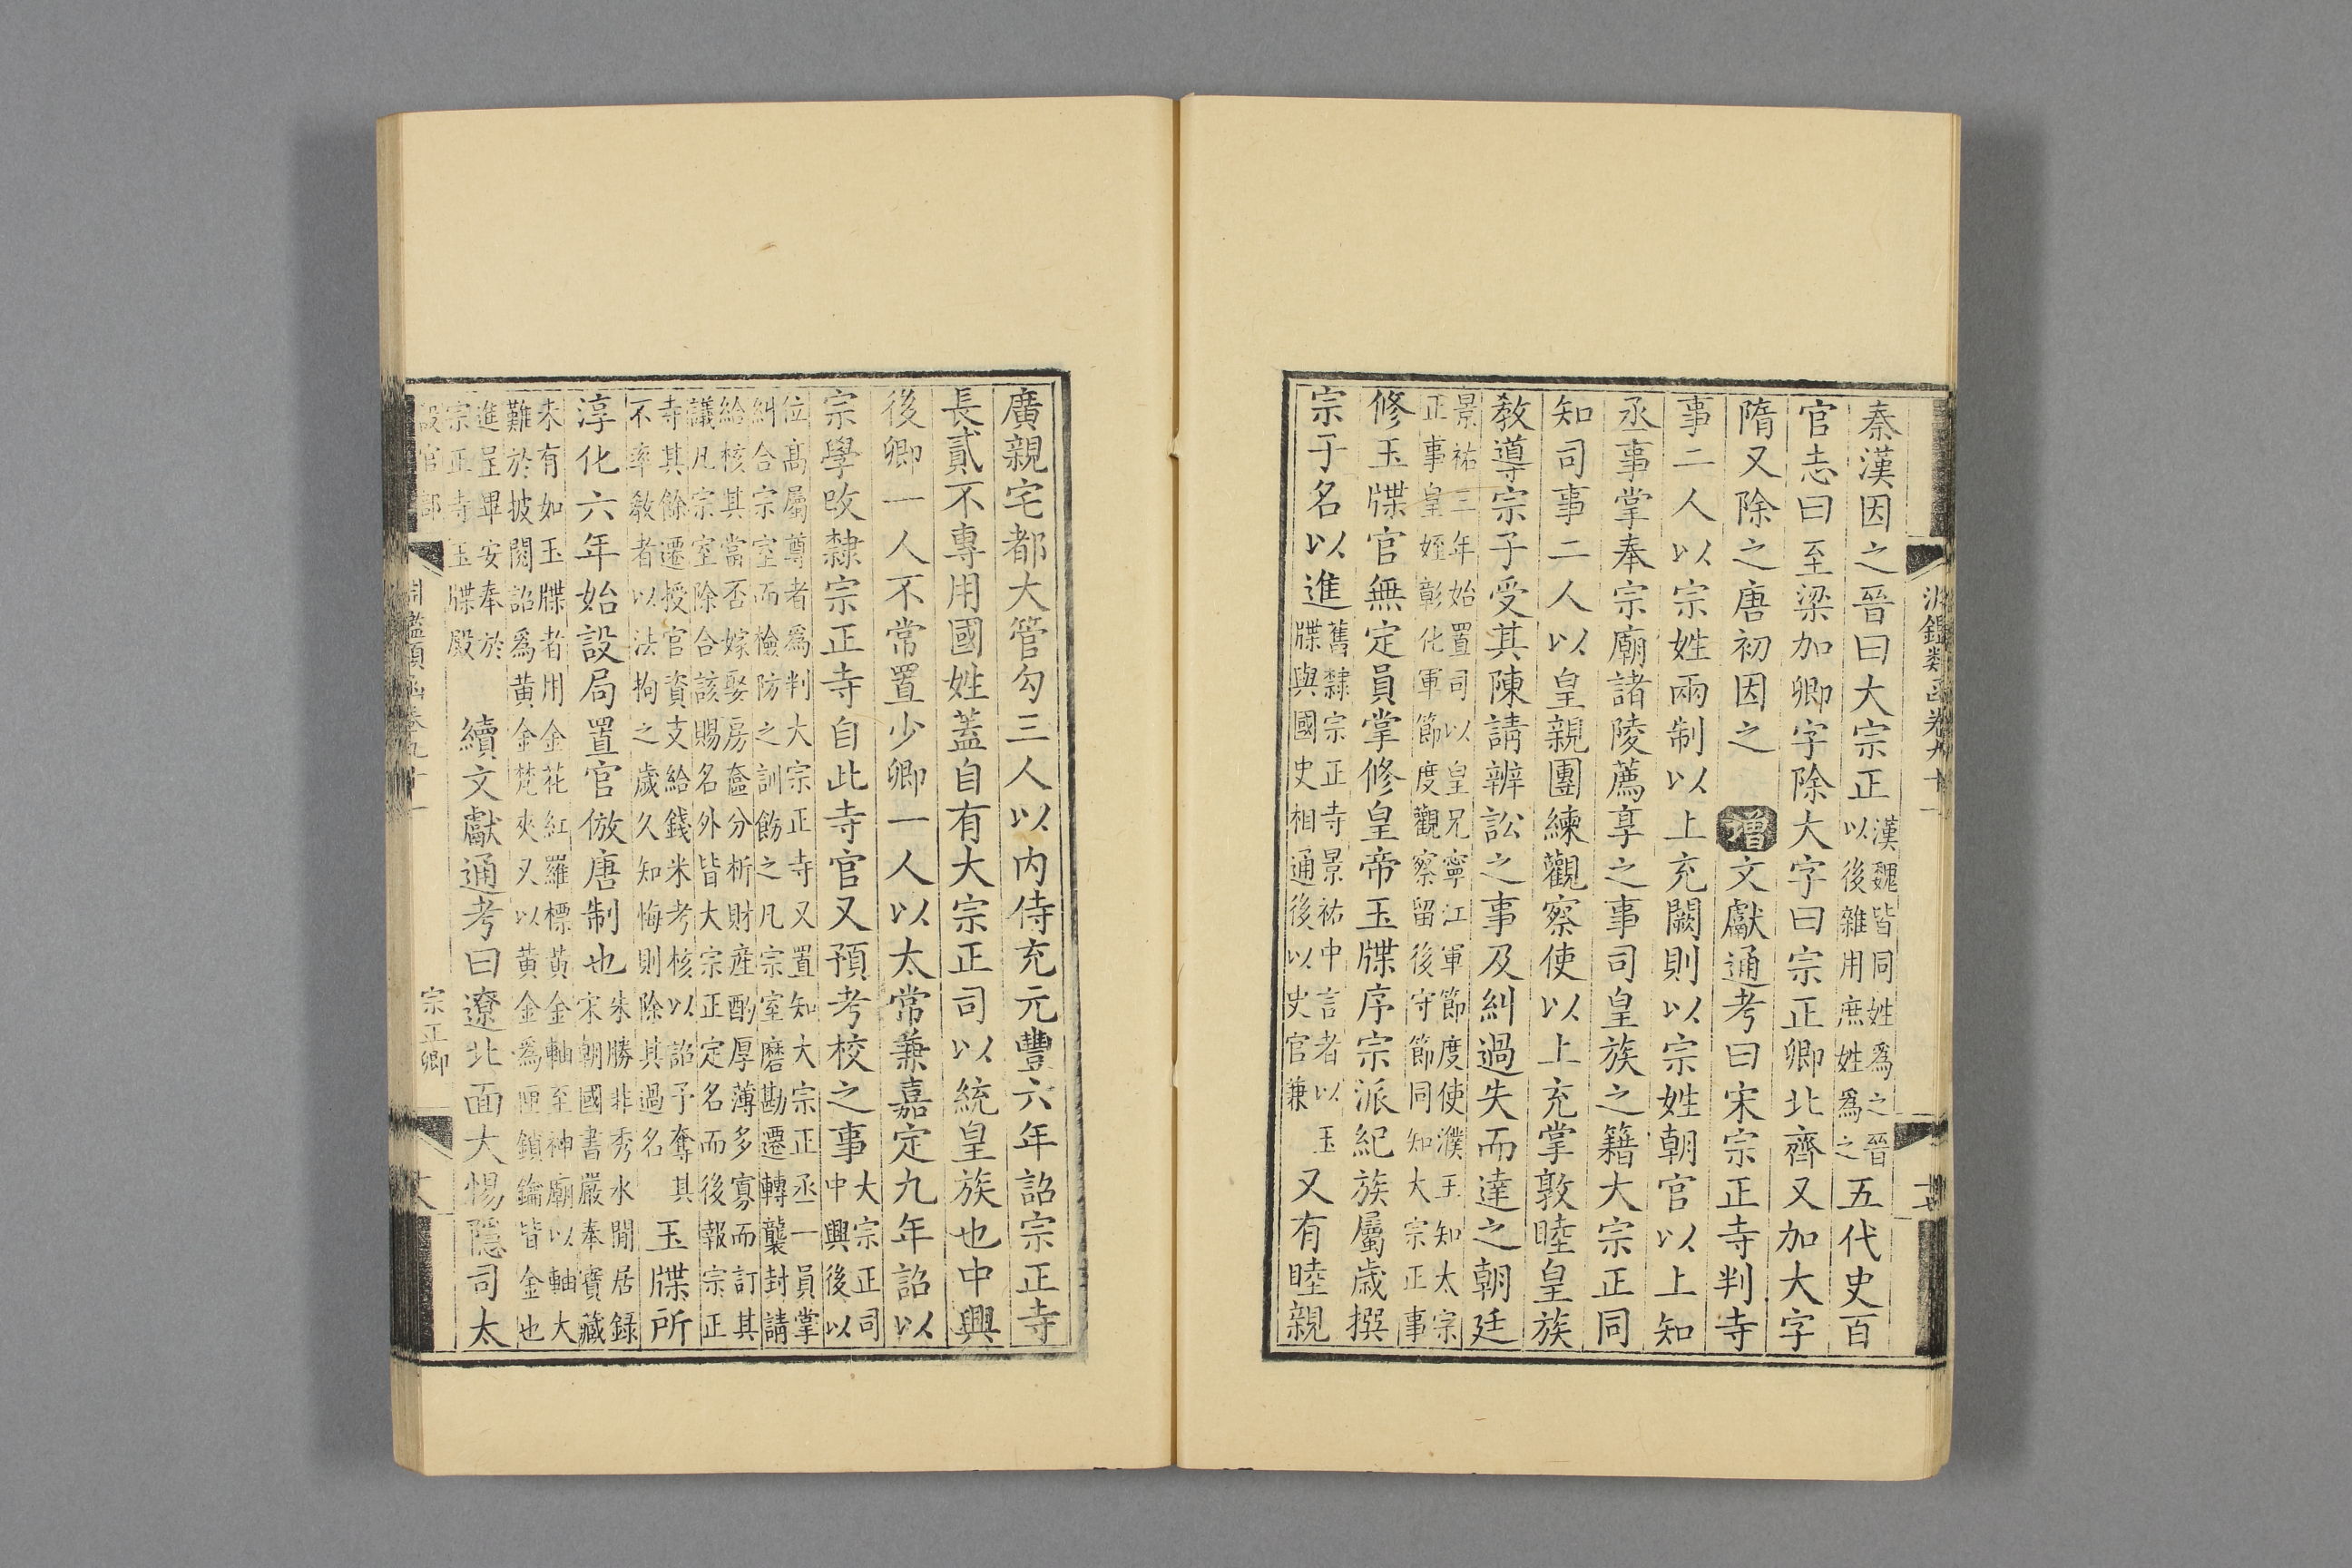 秦漢因之晉曰大宗正漢魏皆同姓爲之晉以後雜用庶姓爲之五代史百
官志曰至梁加卿字除大字曰宗正卿北齊又加大字
隋又除之唐初因之 增文獻通考曰宋宗正寺判寺
事二人以宗姓兩制以上充闕則以宗姓朝官以上知
丞事掌奉宗廟諸陵薦享之事司皇族之籍大宗正同
知司事二人以皇親團練觀察使以上充掌敦睦皇族
教導宗子受其陳請辨訟之事及糾過失而達之朝廷
景祐三年始置司以皇兄寧江軍節度使濮王知太宗
正事皇姪彰化軍節度觀察留後守節同知大宗正事
修玉牒官無定員掌修皇帝玉牒序宗派紀族屬歲撰
宗子名以進舊隸宗正寺景祐中言者以玉牒與國史相通後以史官兼又有睦親
廣親宅都大管勾三人以内侍充元豐六年詔宗正寺
長貳不專用國姓蓋自有大宗正司以統皇族也中興
後卿一人不常置少卿一人以太常兼嘉定九年詔以
宗學改隸宗正寺自此寺官又預考校之事大宗正司中興後以
位高屬尊者爲判大宗正寺又置知大宗正丞一員掌
糾合宗室而檢防之訓飭之凡宗室磨勘遷轉襲封請
給核其當否嫁娶房奩分析財産酌厚薄多寡而訂其
議凡宗室除合該賜名外皆大宗正定名而後報宗正
寺其餘遷授官資支給錢米考核以詔予奪其
不率教者以法拘之歲久知悔則除其過名
玉牒所
淳化六年始設局置官倣唐制也朱勝非秀水閒居録宋朝國書嚴奉寶藏
未有如玉牒者用金花紅羅標黃金軸至神廟以軸大
難於披閱詔爲黃金梵夾又以黃金爲匣鎖鑰皆金也
進呈畢安奉於
宗正寺玉牒殿
續文獻通考曰遼北面大惕隱司太
淵鑑類函卷九十一
宗正卿